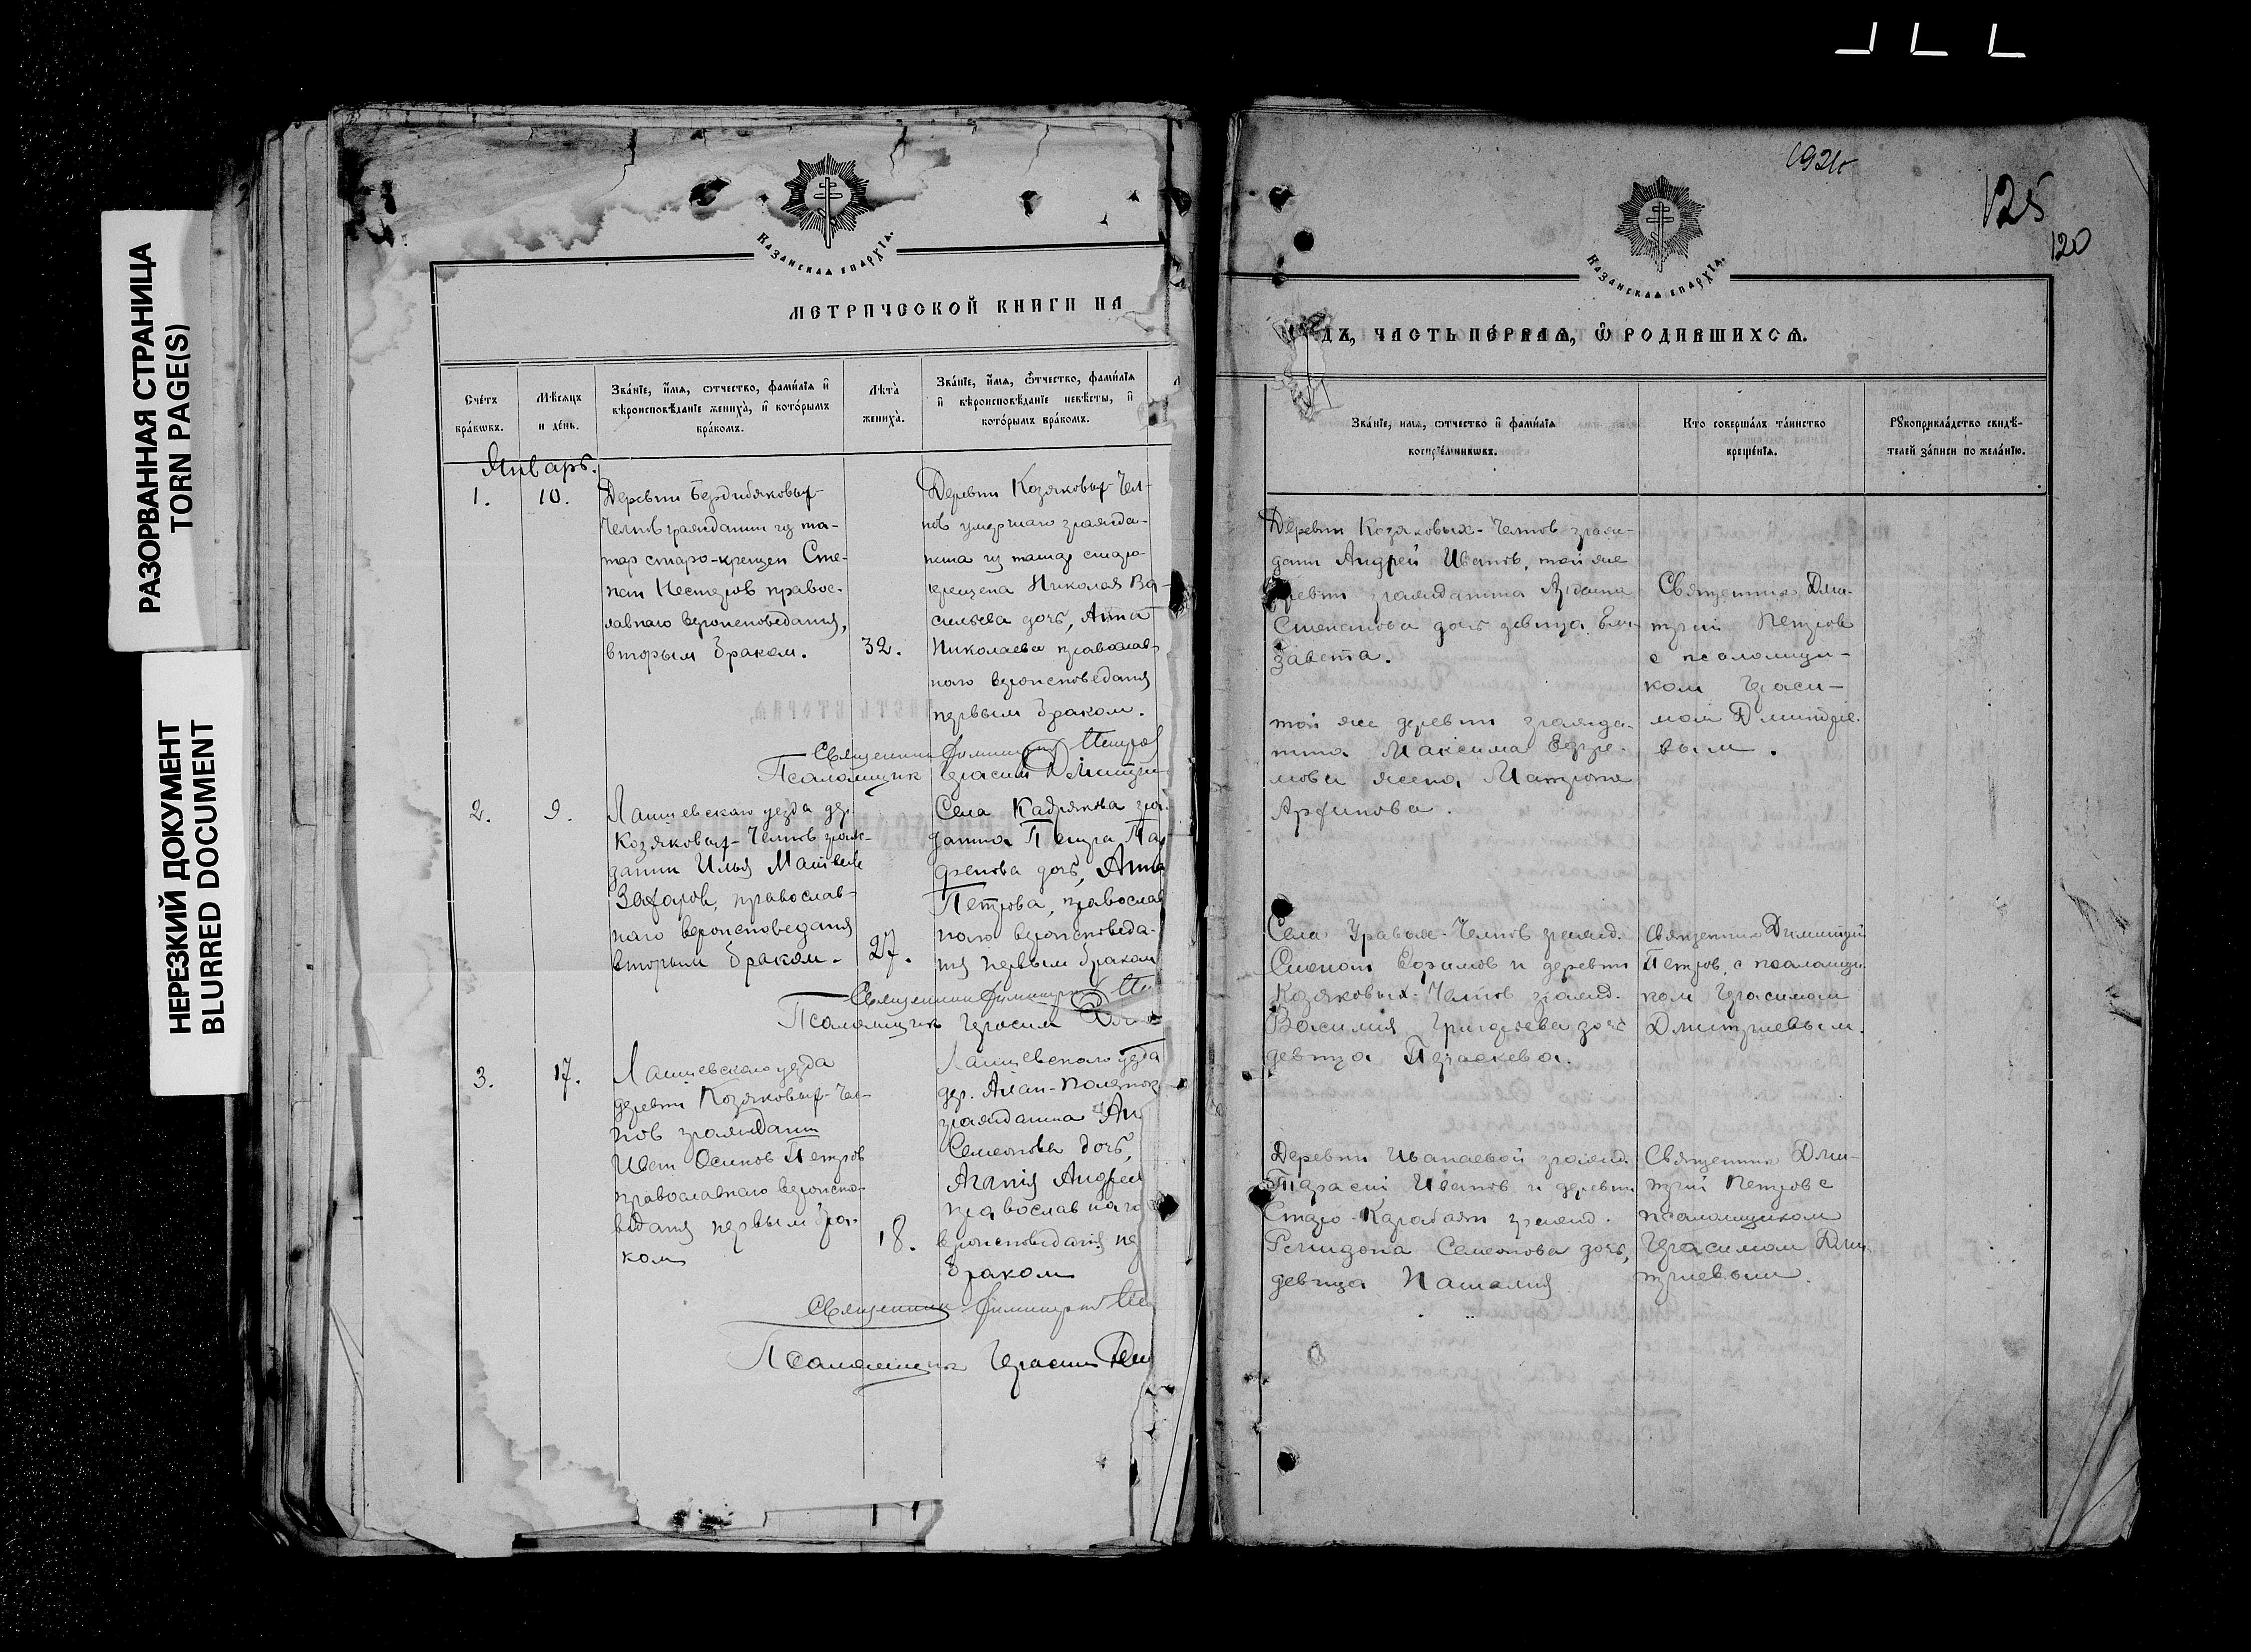 РАЗОРВАННАЯ СТРАНИЦА
TORN PAGE(S)
НЕРЕЗКИЙ ДОКУМЕНТ
BLURRED DOCUMENT
Казанская епархїа.
МЕТРИЧЕСКОЙ КНИГИ НА
Счетъ
браковъ.
Мѣсяцъ
и день.
Званїе, имя, отчество, фамилїя и
вѣроисповѣданїе жениха, и которымъ
бракомъ.
Лѣта
жениха.
Званїе, имя, отчество, фамилїя
и вѣроисповѣданїе невѣсты, и
которымъ бракомъ.
Январь.
1.
10.
Деревни Бердибяковых-
Челнов гражданин из та-
тар старо-крещен Сте-
пан Нестеров правос-
лавнаго вероисповедания,
вторым браком.
32.
Деревни Козяковых-Чел-
нов умершаго гражда-
нина из татар старо-
крещена Николая Ва-
сильева дочь, Анна
Николаева православ-
наго вероисповедания
первым браком.
Священник Димитрий Петров
Псаломщик Герасим Дмитри
2.
9.
Лаишевскаго уезда дер.
Козяковых-Челнов граж-
данин Илья Матвеев
Захаров, православ-
наго вероисповедания
вторым браком.
27.
Села Кадряква гра
данина Петра Па
фенова дочь, Анна
Петрова, православ
наго вероисповеда-
ния первым браком
Священник Димитрий Пе
Псаломщик Герасим Дми
3.
17.
Лаишевскаго уезда
деревни Козяковых-Чел-
нов гражданин
Иван Осипов Петров
православнаго вероиспо-
ведания первым бра-
ком
18.
Лаишевскаго уезда
дер. Алан-Полянок
гражданина Ан
Семенова дочь,
Агапия Андрее
православнаго
вероисповедания пе
браком
Священник Димитрий Пе
Псаломщик Герасим Дми
1921г
125
120
Казанская епархїа.
ДЪ, ЧАСТЬ ПЕРВАЯ, Ѿ РОДИВШИХСЯ.
Званїе, имя, отчество и фамилїя
воспрїемниковъ.
Кто совершалъ таинство
крещенїя.
Рукоприкладство свидѣ-
телей записи по желанїю.
Деревни Козяковых-Челнов граж-
данин Андрей Иванов, той же
деревни гражданина
Степанова дочь девица Ели-
завета.
той же деревни гражда-
нина Максима Ефре-
мова жена Матрона
Архипова.
Священник Дми-
трий Петров
с псаломщи-
ком Гераси-
мом Дмитрие-
вым.
Села Уравых-Челнов гражд.
Ефимов и деревни
Козяковых-Челнов гражд.
Василия Григорьева дочь
девица Параскева.
Священник Димитрий
Петров, с псаломщи-
ком Герасимом
Дмитриевым.
Деревни Иванаевой гражд.
Тарасий Иванов и деревни
Старо-Карабаян гражд.
Семенова дочь,
девица Наталия
Священник Дми-
трий Петров с
псаломщиком
Герасимом Дми
триевым.